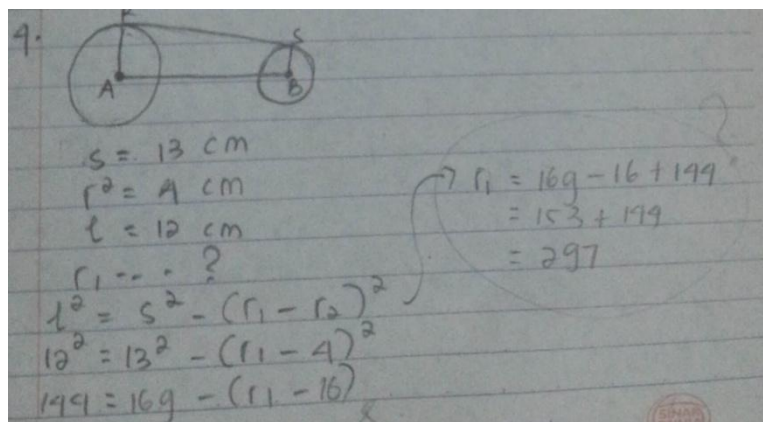 4.
R
S
A
B
s = 13 cm
r² = 4 cm
l = 12 cm
r₁ --- ?
l² = s² - (r₁ - r₂)²
12² = 13² - (r₁ - 4)²
144 = 169 - (r₁ - 16)
→ r₁ = 169 - 16 + 144
= 153 + 144
= 297
?
SINAR